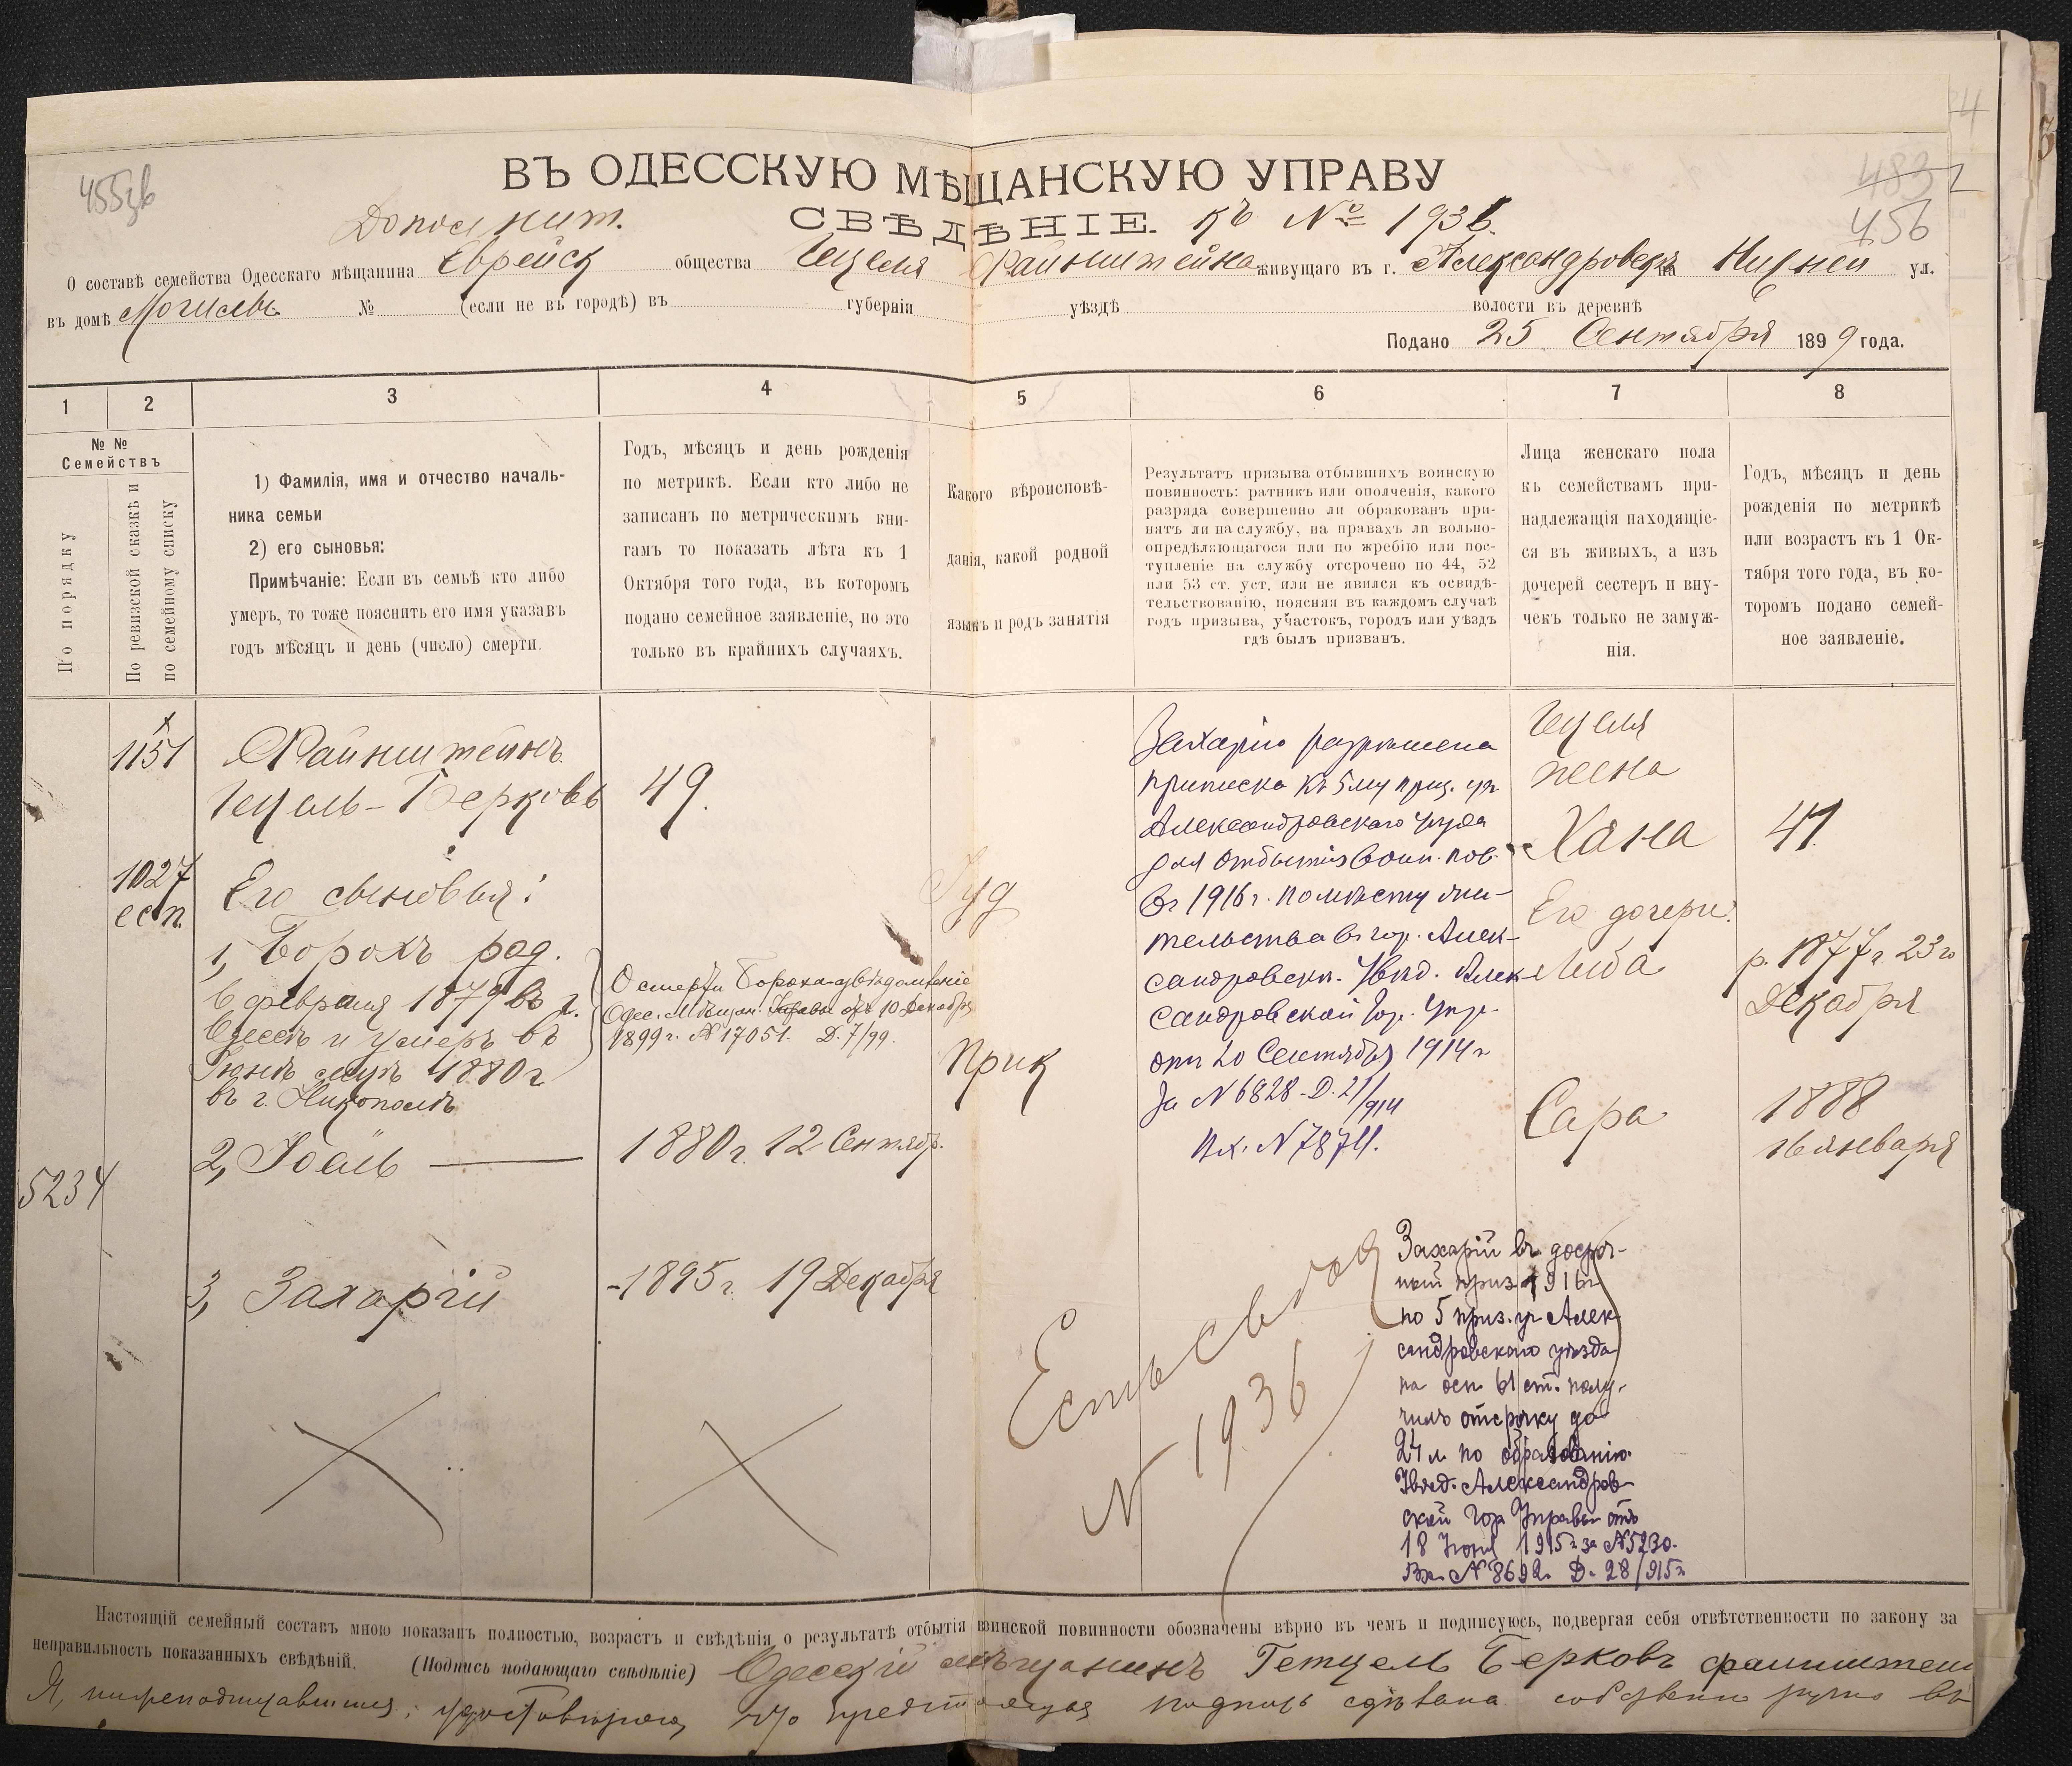 455
483
456
ВЪ ОДЕССКУЮ МѢЩАНСКУЮ УПРАВУ
СВѢДѢНІЕ. къ № 1936.
О составѣ семейства Одесскаго мѣщанина Еврейск общества Гецеля Файнштейна живущаго въ г. Александровскѣ Нижней ул.
въ домѣ № (если не въ городѣ) въ губерніи уѣздѣ волости въ деревнѣ
Подано 25 Сентября 1899 года.
1 2 3 4 5 6 7 8
№ №
Семействъ
По порядку
По ревизской сказкѣ и
по семейному списку
1) Фамилія, имя и отчество началь-
ника семьи
2) его сыновья:
Примѣчаніе: Если въ семьѣ кто либо
умеръ, то тоже пояснить его имя указавъ
годъ мѣсяцъ и день (число) смерти.
Годъ, мѣсяцъ и день рожденія
по метрикѣ. Если кто либо не
записанъ по метрическимъ кни-
гамъ то показать лѣта къ 1
Октября того года, въ которомъ
подано семейное заявленіе, но это
только въ крайнихъ случаяхъ.
Какого вѣроисповѣ-
данія, какой родной
языкъ и родъ занятія
Результатъ призыва отбывшихъ воинскую
повинность: ратникъ или ополченія, какого
разряда совершенно ли обракованъ при-
нятъ ли на службу, на правахъ ли вольно-
опредѣляющагося или по жребію или пос-
тупленіе на службу отсрочено по 44, 52
или 53 ст. уст. или не явился къ освидѣ-
тельствованію, поясняя въ каждомъ случаѣ
годъ призыва, участокъ, городъ или уѣздъ
гдѣ былъ призванъ.
Лица женскаго пола
къ семействамъ при-
надлежащія находящіе-
ся въ живыхъ, а изъ
дочерей сестеръ и вну-
чекъ только не замуж-
нія.
Годъ, мѣсяцъ и день
рожденія по метрикѣ
или возрастъ къ 1 Ок-
тября того года, въ ко-
торомъ подано семей-
ное заявленіе.
1151
Файнштейнъ
Гецель-Берковъ
49.
1027
Его сыновья:
1, Борохъ род.
6 февраля 1879 въ г.
Одессѣ и умеръ въ
Іюнѣ мцѣ 1880 г.
въ г. Никополѣ
О смерти Бороха увѣдомленіе
Одес. Мѣщан. Управы отъ 10 Декабря
1899 г. № 17051. Д. 7/99.
2, Іоель
1880 г. 12 Сентябр.
5234
3, Захарій
-1895 г. 19 Декабря
Іуд
Прик
Захарію разрѣшена
приписка къ 5 му приз. уч.
Александровскаго уѣзда
для отбытія воин. пов.
въ 1916 г. по мѣсту жи-
тельства въ гор. Алек-
сандровскѣ. Увѣд. Алек-
сандровской Гор. Упр.
отъ 20 Сентября 1914 г.
За № 6828 - Д. 21/914
Вх. № 7874.
Гецеля
жена
Хана
41.
Его дочери:
Либа
р. 1877 г. 23 го
Декабря
Сара
1888
16 января
Есть свѣд
№ 1936
Захарій въ досроч-
ный приз. 1916 г.
по 5 приз. уч Алек-
сандровскаго уѣзда
на осн. 61 ст. полу-
чилъ отсрочку до
24 л. по образованію.
Увѣд. Александров-
ской Гор Управы отъ
18 Іюня 1915 г. за № 5230.
Вх. № 8692. Д. 28/915 г.
Настоящій семейный составъ мною показанъ полностью, возрастъ и свѣдѣнія о результатѣ отбытія воинской повинности обозначены вѣрно въ чемъ и подписуюсь, подвергая себя отвѣтственности по закону за
неправильность показанныхъ свѣдѣній. (Подпись подающаго свѣдѣніе) Одесскій мѣщанинъ Гетцель Берковъ файнштейн
Я, нижеподписавшійся, удостовѣряю, что предстоящая подпись сдѣлана собственноручно въ